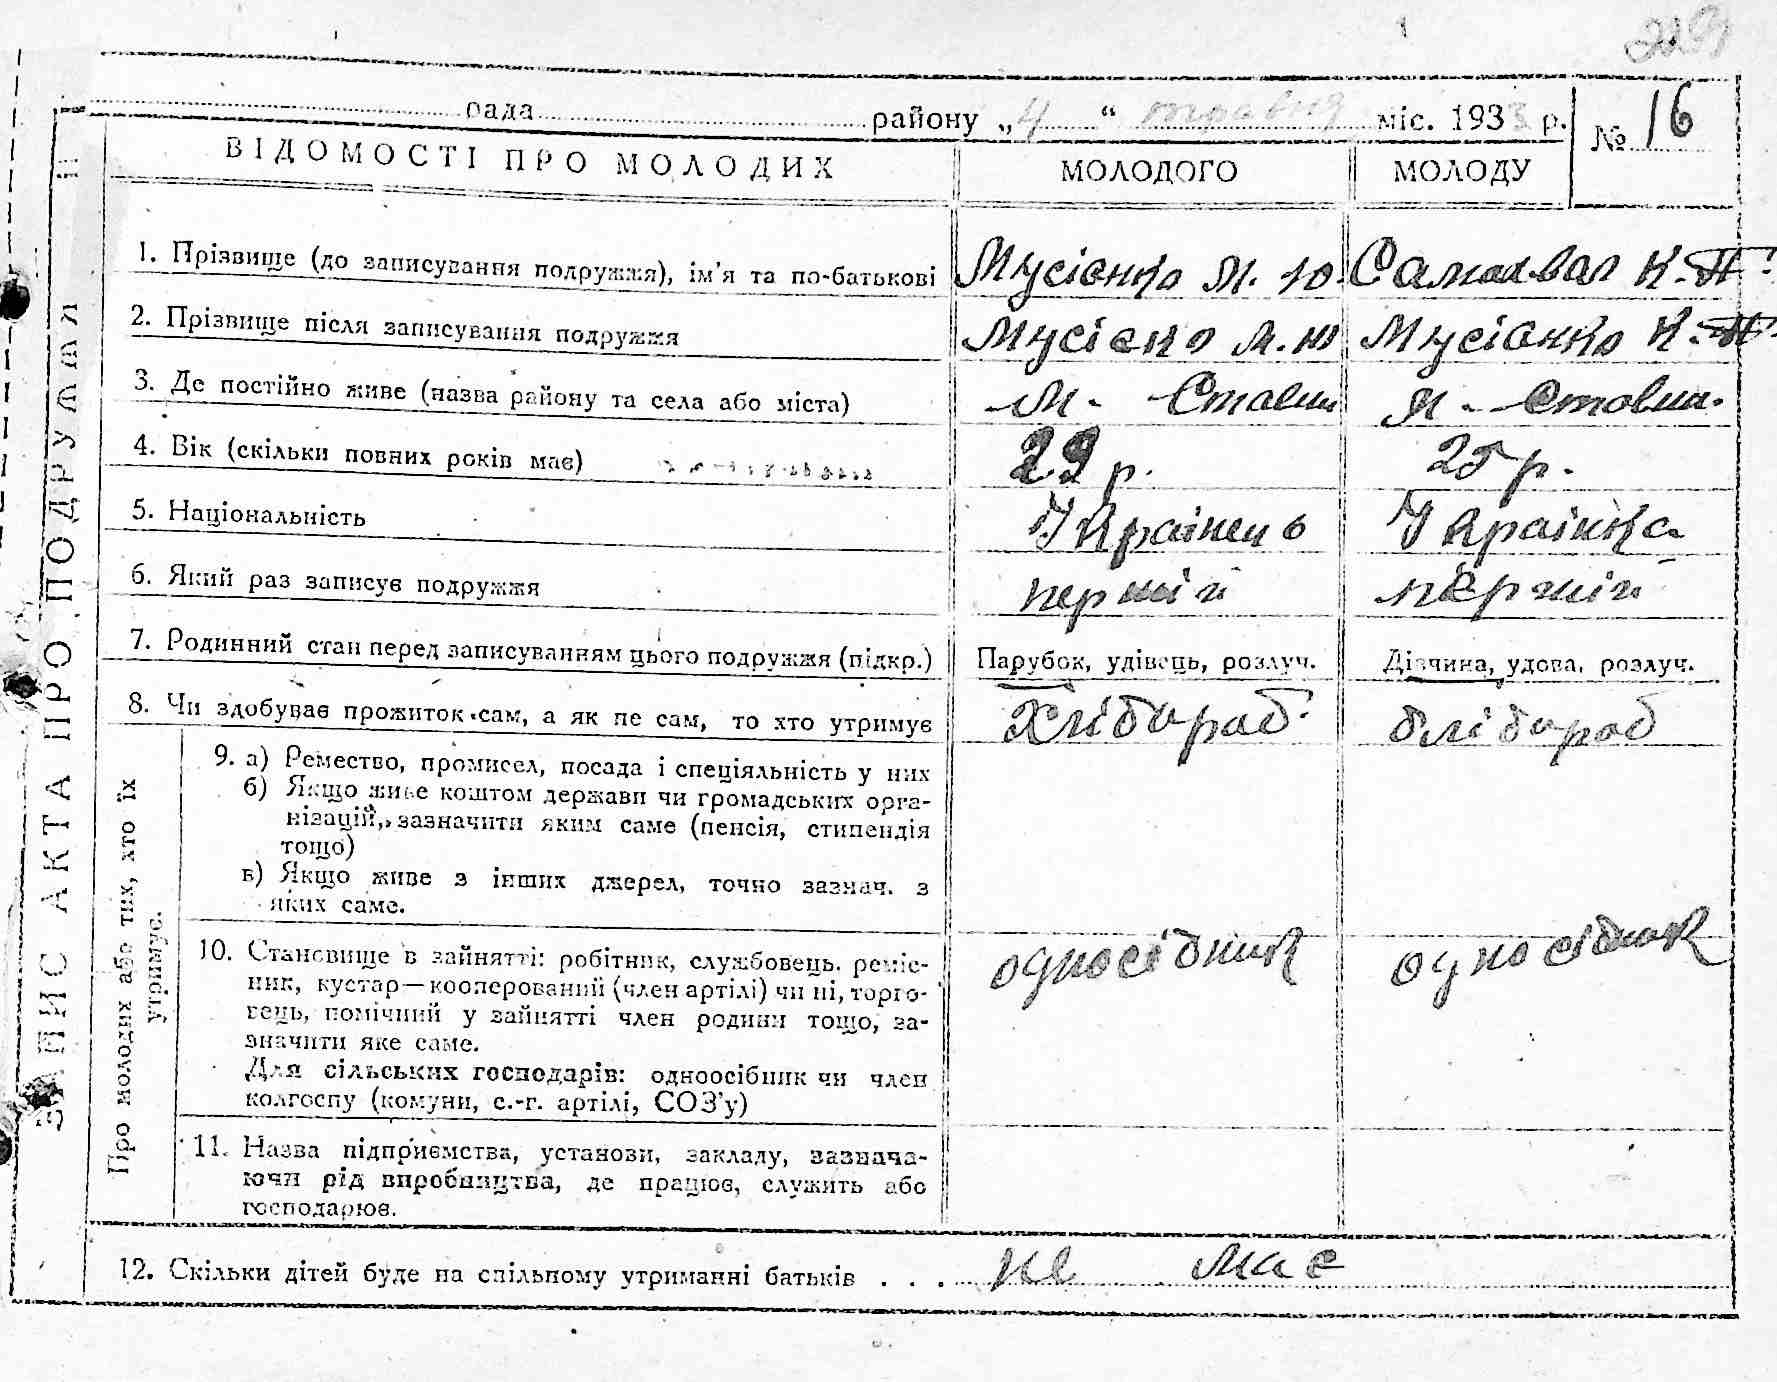 1
рада району „4“ травня міс. 1933 р. № 16
ВІДОМОСТІ ПРО МОЛОДИХ МОЛОДОГО МОЛОДУ
ЗАПИС АКТА ПРО ПОДРУЖЖЯ
1. Прізвище (до записування подружжя), ім'я та по-батькові Мусієнко М. Ю. К. П.
2. Прізвище після записування подружжя Мусієко М. Ю Мусієнко К. П.
3. Де постійно живе (назва району та села або міста) М. - Ставищ М. - Ставищ.
4. Вік (скільки повних років має) 29 р. 25 р.
5. Національність Українець Українка
6. Який раз записує подружжя перший перший
7. Родинний стан перед записуванням цього подружжя (підкр.) Парубок, удівець, розлуч. Дівчина, удова, розлуч.
8. Чи здобуває прожиток сам, а як не сам, то хто утримує Хлібороб хлібороб
Про молодих або тих, хто їх
утримує.
9. а) Ремество, промисел, посада і спеціяльність у них
б) Якщо живе коштом держави чи громадських орга-
нізацій, зазначити яким саме (пенсія, стипендія
тощо)
в) Якщо живе з інших джерел, точно зазнач. з
яких саме.
10. Становище в зайнятті: робітник, службовець, реміс-
ник, кустар—кооперований (член артілі) чи ні, торго-
вець, помічний у зайнятті член родини тощо, за-
значити яке саме.
Для сільських господарів: одноосібник чи член
колгоспу (комуни, с.-г. артілі, СОЗ'у)
односібник односібник
11. Назва підприємства, установи, закладу, зазнача-
ючи рід виробництва, де працює, служить або
господарює.
12. Скільки дітей буде на спільному утриманні батьків . . . не має